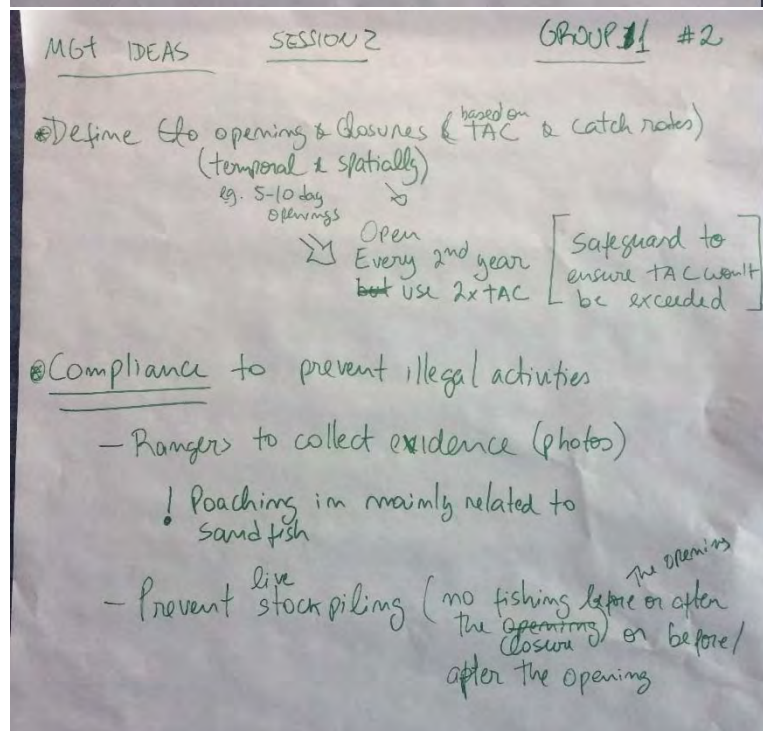 MGt IDEAS SESSION 2 GROUP 1 #2
Define opening & closures (based on TAC & catch rates)
(temporal & spatially)
eg. 5-10 day
openings
Open
Every 2nd year
but use 2x TAC
[Safeguard to
ensure TAC won't
be exceeded]
Compliance to prevent illegal activities
- Rangers to collect evidence (photos)
! Poaching im mainly related to
sandfish
- Prevent live stockpiling (no fishing before the opening or after
the opening closure) or before/
after the opening